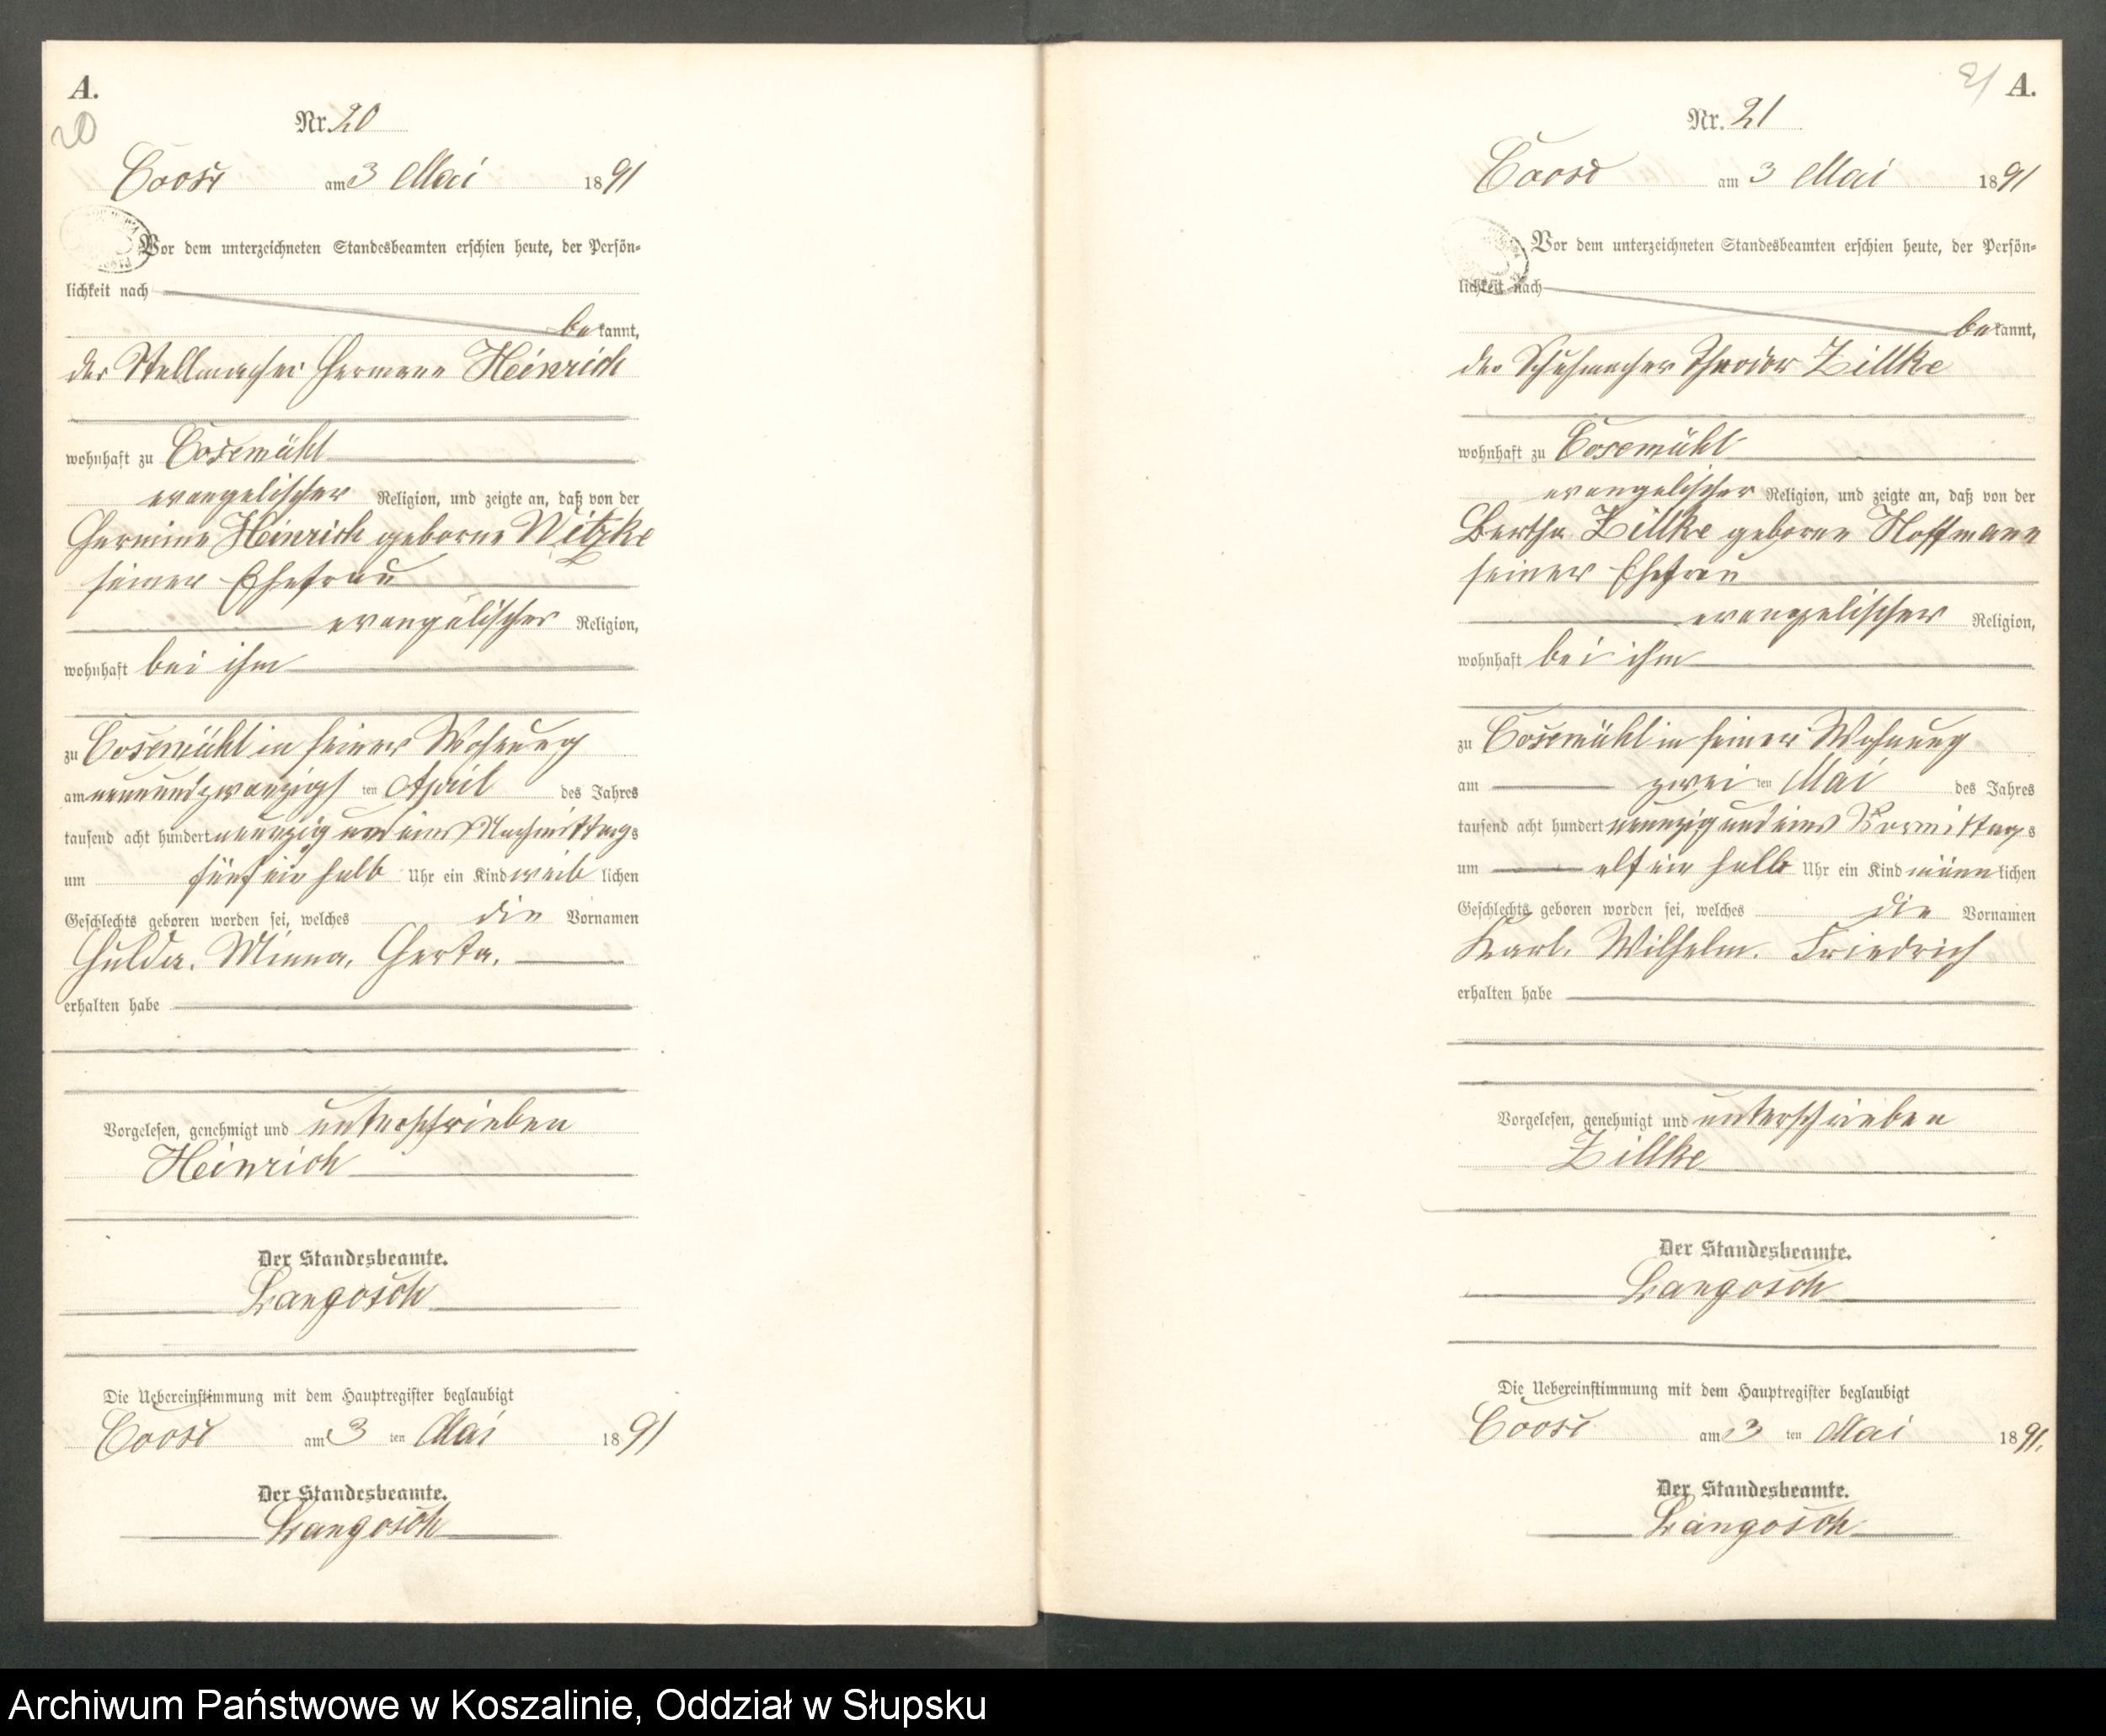 A.
20
Nr. 20
Coose am 3 Mai 1891
Vor dem unterzeichneten Standesbeamten erschien heute, der Persön-
lichkeit nach
bekannt,
der Stellmacher Hermann Heinrich
wohnhaft zu Cosemühl
evangelischer Religion, und zeigte an, daß von der
Hermine Heinrich geborne Witzke
seiner Ehefrau
evangelischer Religion,
wohnhaft bei ihm
zu Cosemühl in seiner Wohnung
am neunundzwanzigsten April des Jahres
tausend acht hundert neunzig und eins Nachmittags
um fünf ein halb Uhr ein Kind weiblichen
Geschlechts geboren worden sei, welches die Vornamen
Hulda. Minna. Herta.
erhalten habe
Vorgelesen, genehmigt und unterschrieben
Heinrich
Der Standesbeamte.
Langosch
Die Uebereinstimmung mit dem Hauptregister beglaubigt
Coose am 3 ten Mai 1891
Der Standesbeamte.
Langosch
21 A.
Nr. 21
Coose am 3 Mai 1891
Vor dem unterzeichneten Standesbeamten erschien heute, der Persön-
lichkeit nach
bekannt,
der Schuhmacher Theodor Zillke
wohnhaft zu Cosemühl
evangelischer Religion, und zeigte an, daß von der
Bertha Zillke geborne Hoffmann
seiner Ehefrau
evangelischer Religion,
wohnhaft bei ihm
zu Cosemühl in seiner Wohnung
am zwei ten Mai des Jahres
tausend acht hundert neunzig und eins Vormittags
um elf ein halb Uhr ein Kind männlichen
Geschlechts geboren worden sei, welches die Vornamen
Karl. Wilhelm. Friedrich
erhalten habe
Vorgelesen, genehmigt und unterschrieben
Zillke
Der Standesbeamte.
Langosch
Die Uebereinstimmung mit dem Hauptregister beglaubigt
Coose am 3 ten Mai 1891.
Der Standesbeamte.
Langosch
Archiwum Państwowe w Koszalinie, Oddział w Słupsku